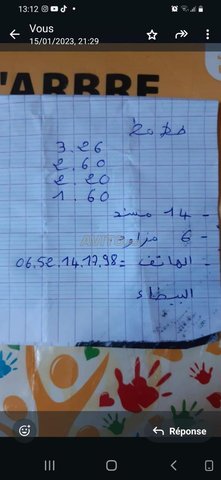 13:12
Vous
15/01/2023, 21:29
L'ARBRE
3.26
2.60
2.20
1.60
- 14 مسند
- 6 مزاور
- الهاتف = 06.52.14.17.98
البيضاء
Avito
Réponse